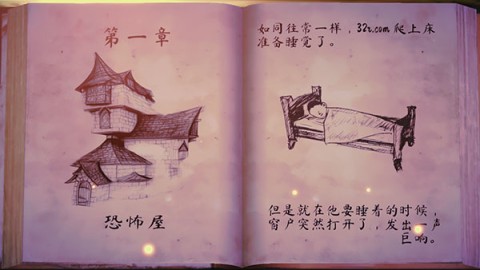 第一章
恐怖屋
如同往常一样，32v.com爬上床
准备睡觉了。
但是就在他要睡着的时候，
窗户突然打开了，发出一声
巨响。